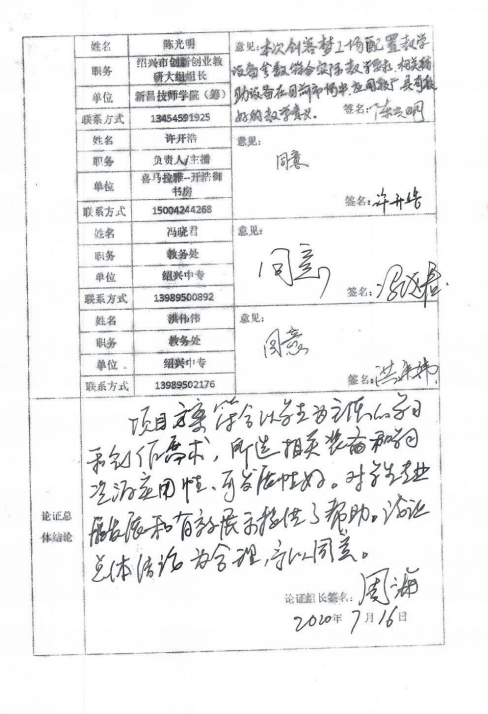 姓名 陈光明 意见:本次创客梦工场配置教学
职务 绍兴市创新创业教研大组组长 设备参数符合实际教学需求,相关辅
单位 新昌技师学院(筹) 助设备在目前市场中应用较广具有较
联系方式 13454591925 好的教学意义。 签名:陈光明
姓名 许开浩 意见:
职务 负责人/主播 同意
单位 喜马拉雅--开浩御书房
联系方式 15004244268 签名:许开浩
姓名 冯晓君 意见:
职务 教务处 同意
单位 绍兴中专
联系方式 13989500892 签名:
姓名 洪伟伟 意见:
职务 教务处 同意
单位 绍兴中专
联系方式 13989502176 签名:
论证总体结论
项目方案符合以学生为主体的学习
和创作需求,所选相关装备和学习
资源实用性、可发展性好。对学生专业
发展和有效展示提供了帮助。论证
总体结论为合理,予以同意。
论证组长签名:周海
2020年7月16日